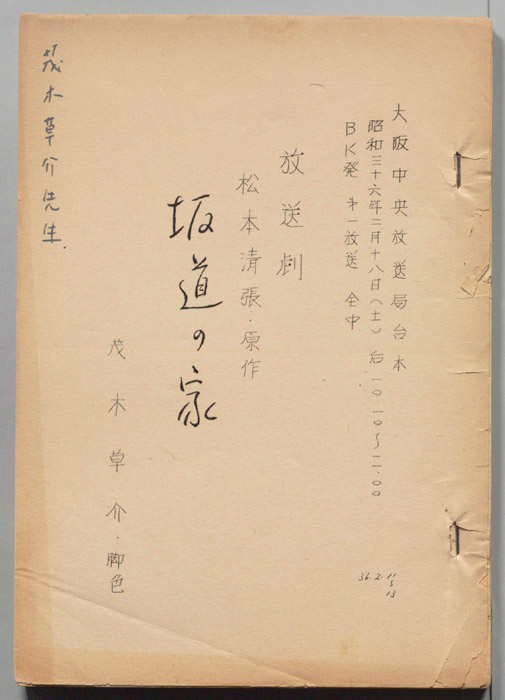 大阪中央放送局台本
昭和三十六年二月十八日(土) 后一〇.一〇〜一一.〇〇
BK発 オ一放送 全中
放送劇
松本清張・原作
坂道の家
茂木草介・脚色
茂木草介先生.
36.2.11
13